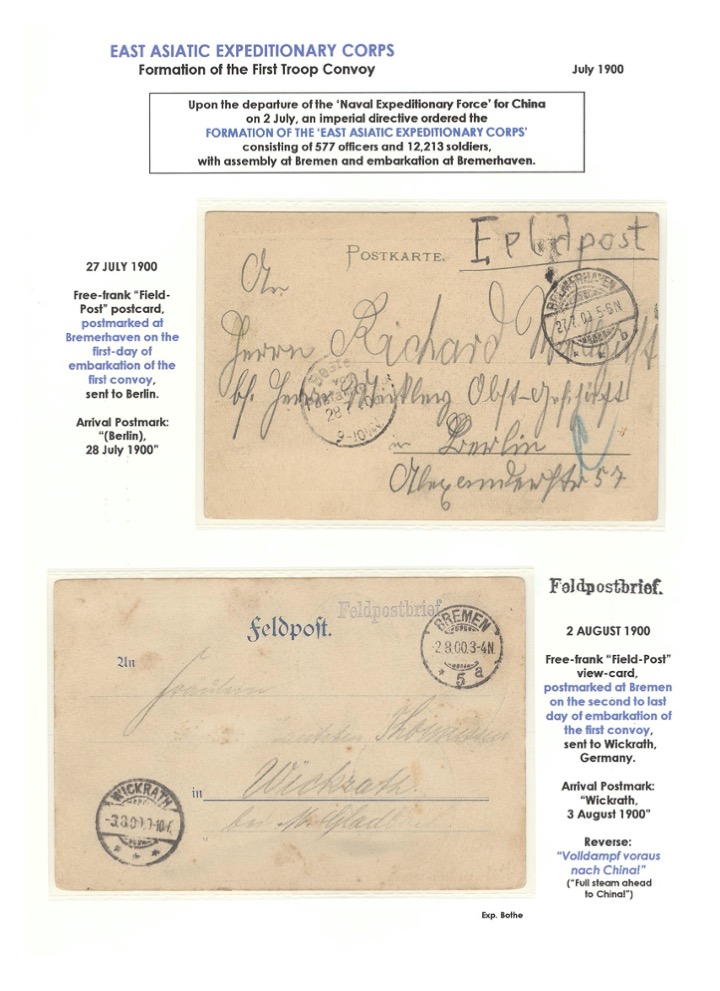 EAST ASIATIC EXPEDITIONARY CORPS
Formation of the First Troop Convoy
July 1900
Upon the departure of the ‘Naval Expeditionary Force’ for China
on 2 July, an imperial directive ordered the
FORMATION OF THE ‘EAST ASIATIC EXPEDITIONARY CORPS’
consisting of 577 officers and 12,213 soldiers,
with assembly at Bremen and embarkation at Bremerhaven.
27 JULY 1900
Free-frank “Field-
Post” postcard,
postmarked at
Bremerhaven on the
first-day of
embarkation of
the first convoy,
sent to Berlin.
Arrival Postmark:
“(Berlin),
28 July 1900”
Feldpost
POSTKARTE.
BREMERHAVEN
27.7.00.5-6N
b
An
Herrn Richard
Bestellt
vom
Postamte
28.7.00
9-10
Obst-Geschäft
in Berlin
Alexanderstr 57
Feldpostbrief.
Feldpost.
BREMEN
-2.8.00.3-4N.
* 5 a
An
Fräulein
Thomassen
WICKRATH
-3.8.00.
in Wickrath.
bei M. Gladb
Feldpostbrief.
2 AUGUST 1900
Free-frank “Field-Post”
view-card,
postmarked at Bremen
on the second to last
day of embarkation of
the first convoy,
sent to Wickrath,
Germany.
Arrival Postmark:
“Wickrath,
3 August 1900”
Reverse:
“Volldampf voraus
nach China!”
(“Full steam ahead
to China!”)
Exp. Bothe